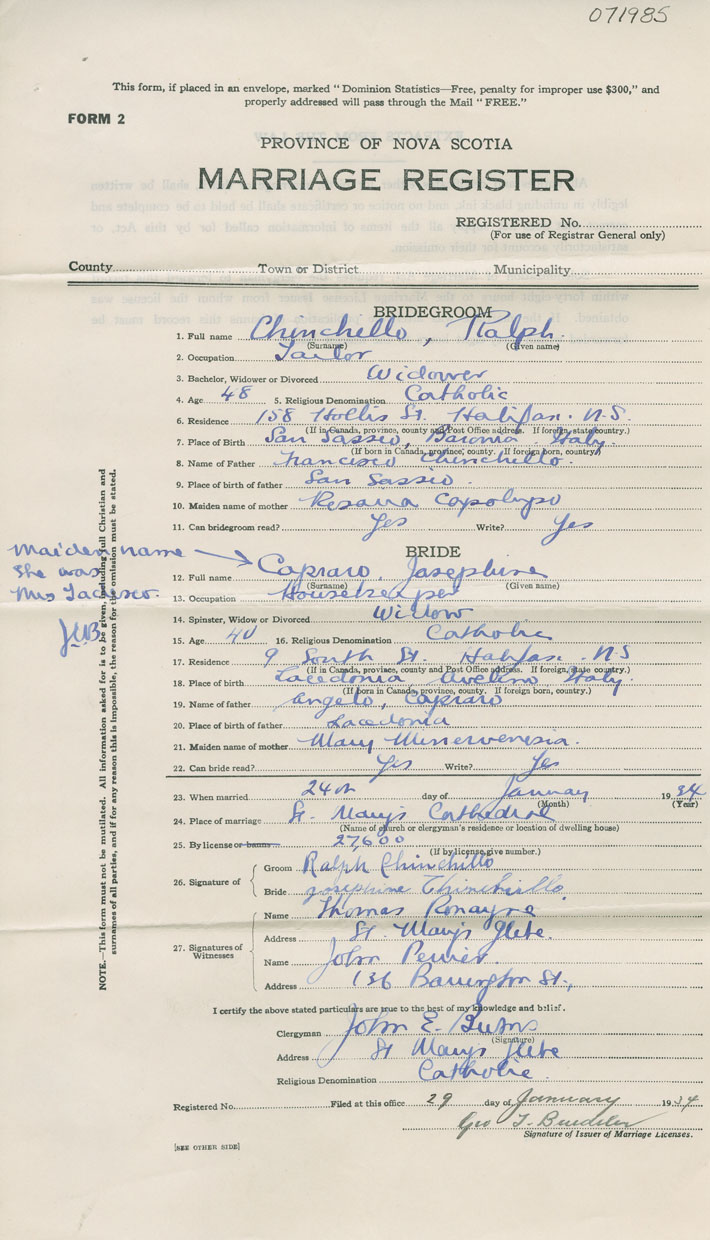 071985
This form, if placed in an envelope, marked "Dominion Statistics—Free, penalty for improper use $300," and
properly addressed will pass through the Mail "FREE."
FORM 2
PROVINCE OF NOVA SCOTIA
MARRIAGE REGISTER
REGISTERED No.
(For use of Registrar General only)
County Town or District Municipality
BRIDEGROOM
1. Full name Chinchello, Ralph.
(Surname) (Given name)
2. Occupation Tailor
3. Bachelor, Widower or Divorced Widower
4. Age 48 5. Religious Denomination Catholic
6. Residence 158 Hollis St. Halifax. N.S.
(If in Canada, province, county and Post Office address. If foreign, state country.)
7. Place of Birth San Sassio, Baronia. Italy.
(If born in Canada, province, county. If foreign born, country.)
8. Name of Father Francisco Chinchello.
9. Place of birth of father San Sassio.
10. Maiden name of mother Rosana Capolupo
11. Can bridegroom read? Yes Write? Yes
BRIDE
Maiden name
She was
Mrs
J.E.B.
12. Full name Capraro, Josephine
(Surname) (Given name)
13. Occupation Housekeeper
14. Spinster, Widow or Divorced Widow
15. Age 40 16. Religious Denomination Catholic
17. Residence 9 South St. Halifax. N.S
(If in Canada, province, county and Post Office address. If foreign, state country.)
18. Place of birth Lacedonia Avelino Italy.
(If born in Canada, province, county. If foreign born, country.)
19. Name of father Angelo, Capraro
20. Place of birth of father Lacedonia
21. Maiden name of mother Mary
22. Can bride read? Yes Write? Yes
23. When married 24th day of January 1934
(Month) (Year)
24. Place of marriage St. Mary's Cathedral
(Name of church or clergyman's residence or location of dwelling house)
25. By license or banns 27600
(If by license, give number.)
26. Signature of Groom Ralph Chinchillo
Bride Josephine Chinchiello
27. Signatures of Witnesses Name Thomas Ronayne
Address St. Mary's Glebe.
Name John Perrier.
Address 136 Barrington St.,
I certify the above stated particulars are true to the best of my knowledge and belief.
Clergyman John E. Burns
(Signature)
Address St Mary's Glebe
Religious Denomination Catholic
Registered No. Filed at this office 29 day of January 1934
Geo T.
Signature of Issuer of Marriage Licenses.
[SEE OTHER SIDE]
NOTE.—This form must not be mutilated. All information asked for is to be given, including full Christian and
surnames of all parties, and if for any reason this is impossible, the reason for the omission must be stated.